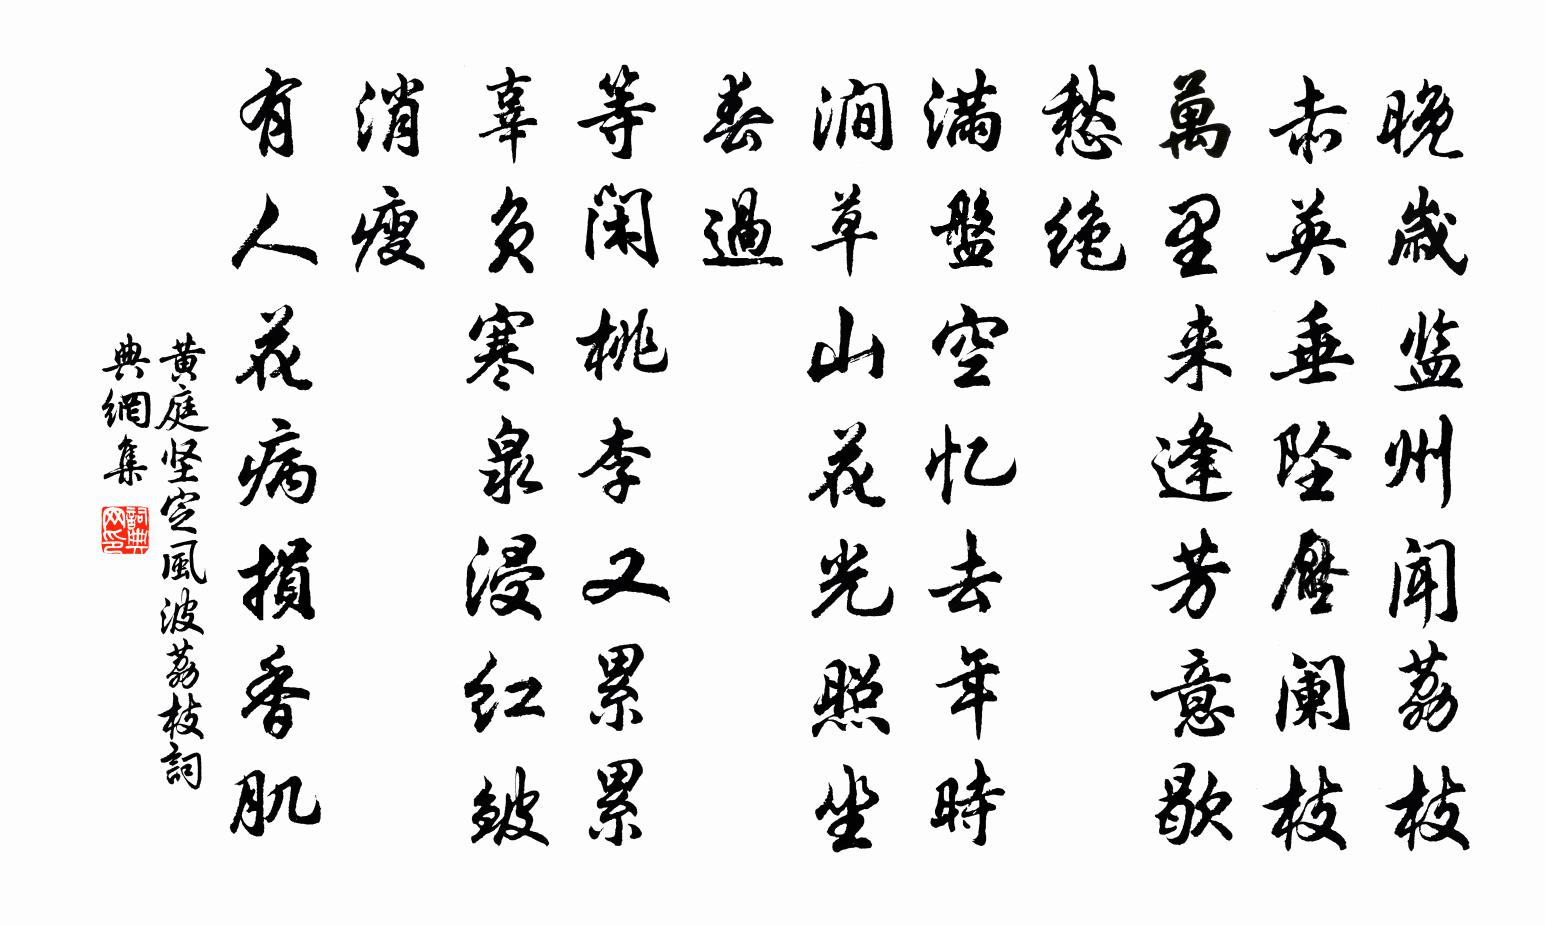 晚歲监州闻荔枝
赤英垂坠壓阑枝
萬里来逢芳意歇
愁绝
满盤空忆去年時
涧草山花光照坐
春過
等闲桃李又累累
辜负寒泉浸红皱
消瘦
有人花病損香肌
黄庭坚定風波荔枝詞
典網集
詞典网印